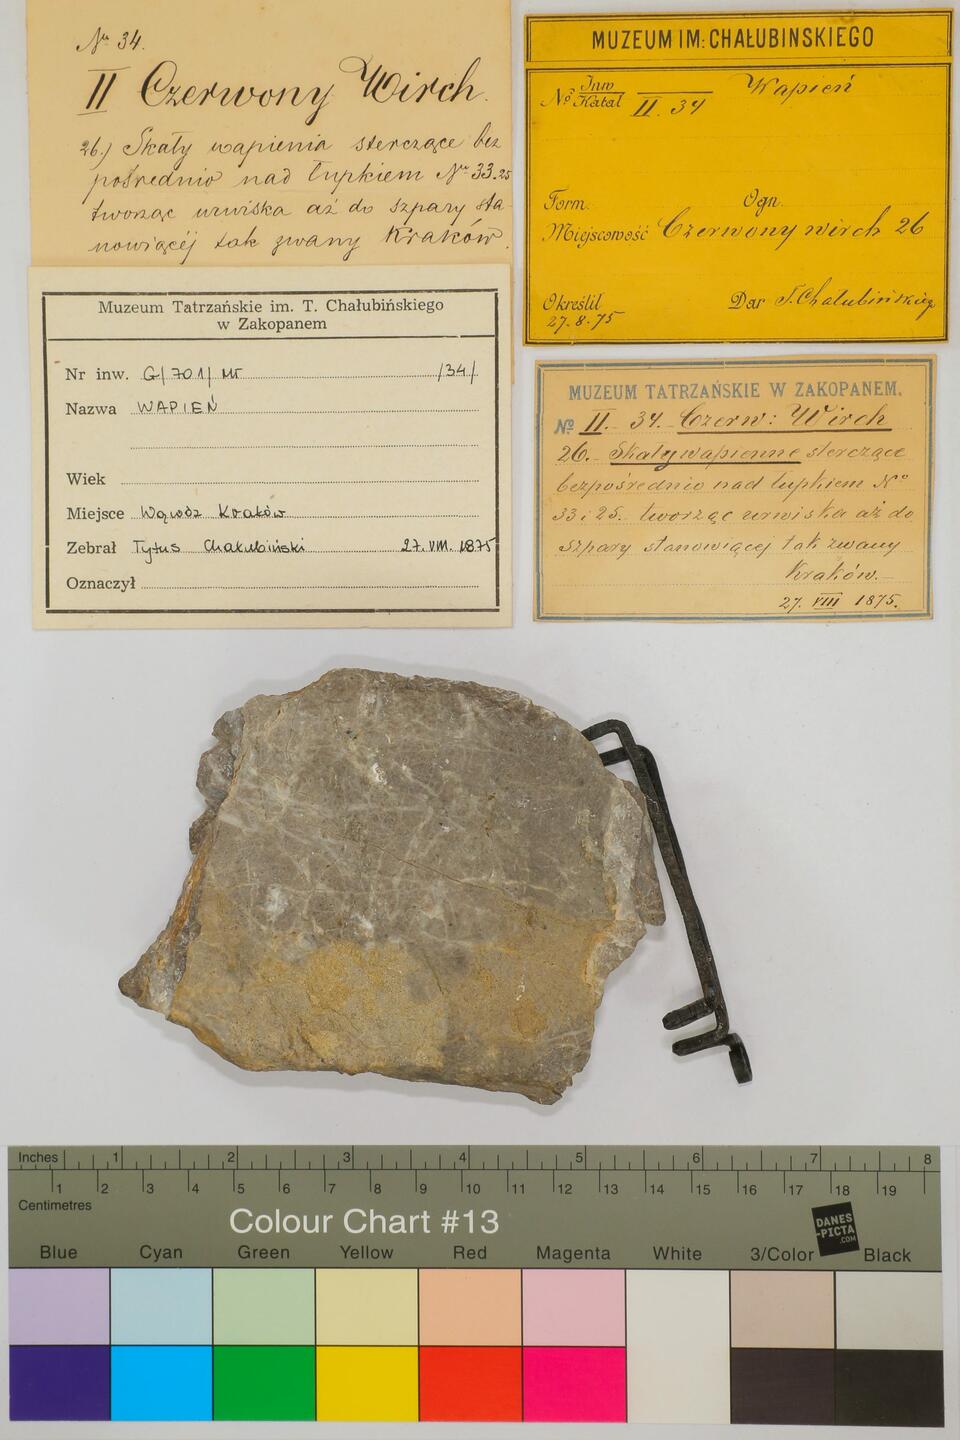 No 34.
II Czerwony Wirch.
26.) Skały wapienia sterczące bez
pośrednio nad łupkiem No 33.25
tworząc urwiska aż do szpary sta-
nowiącéj tak zwany Kraków.
MUZEUM IM: CHAŁUBINSKIEGO
No Inw
Katal II. 34 Wapień
Form. Ogn.
Miejscowość Czerwony wirch 26
Określił Dar T. Chałubińskiego
27.8.75
Muzeum Tatrzańskie im. T. Chałubińskiego
w Zakopanem
Nr inw. G/701/MT /34/
Nazwa WAPIEŃ
Wiek
Miejsce Wąwóz Kraków
Zebrał Tytus Chałubiński 27.VIII.1875
Oznaczył
MUZEUM TATRZAŃSKIE W ZAKOPANEM.
No II. 34. Czerw: Wirch
26. Skały wapienne sterczące
bezpośrednio nad łupkiem No
33 i 25. tworząc urwiska aż do
szpary stanowiącej tak zwany
Kraków.
27. VIII 1875.
Inches 1 2 3 4 5 6 7 8
1 2 3 4 5 6 7 8 9 10 11 12 13 14 15 16 17 18 19
Centimetres
Colour Chart #13
DANES
-PICTA
.COM
Blue Cyan Green Yellow Red Magenta White 3/Color Black